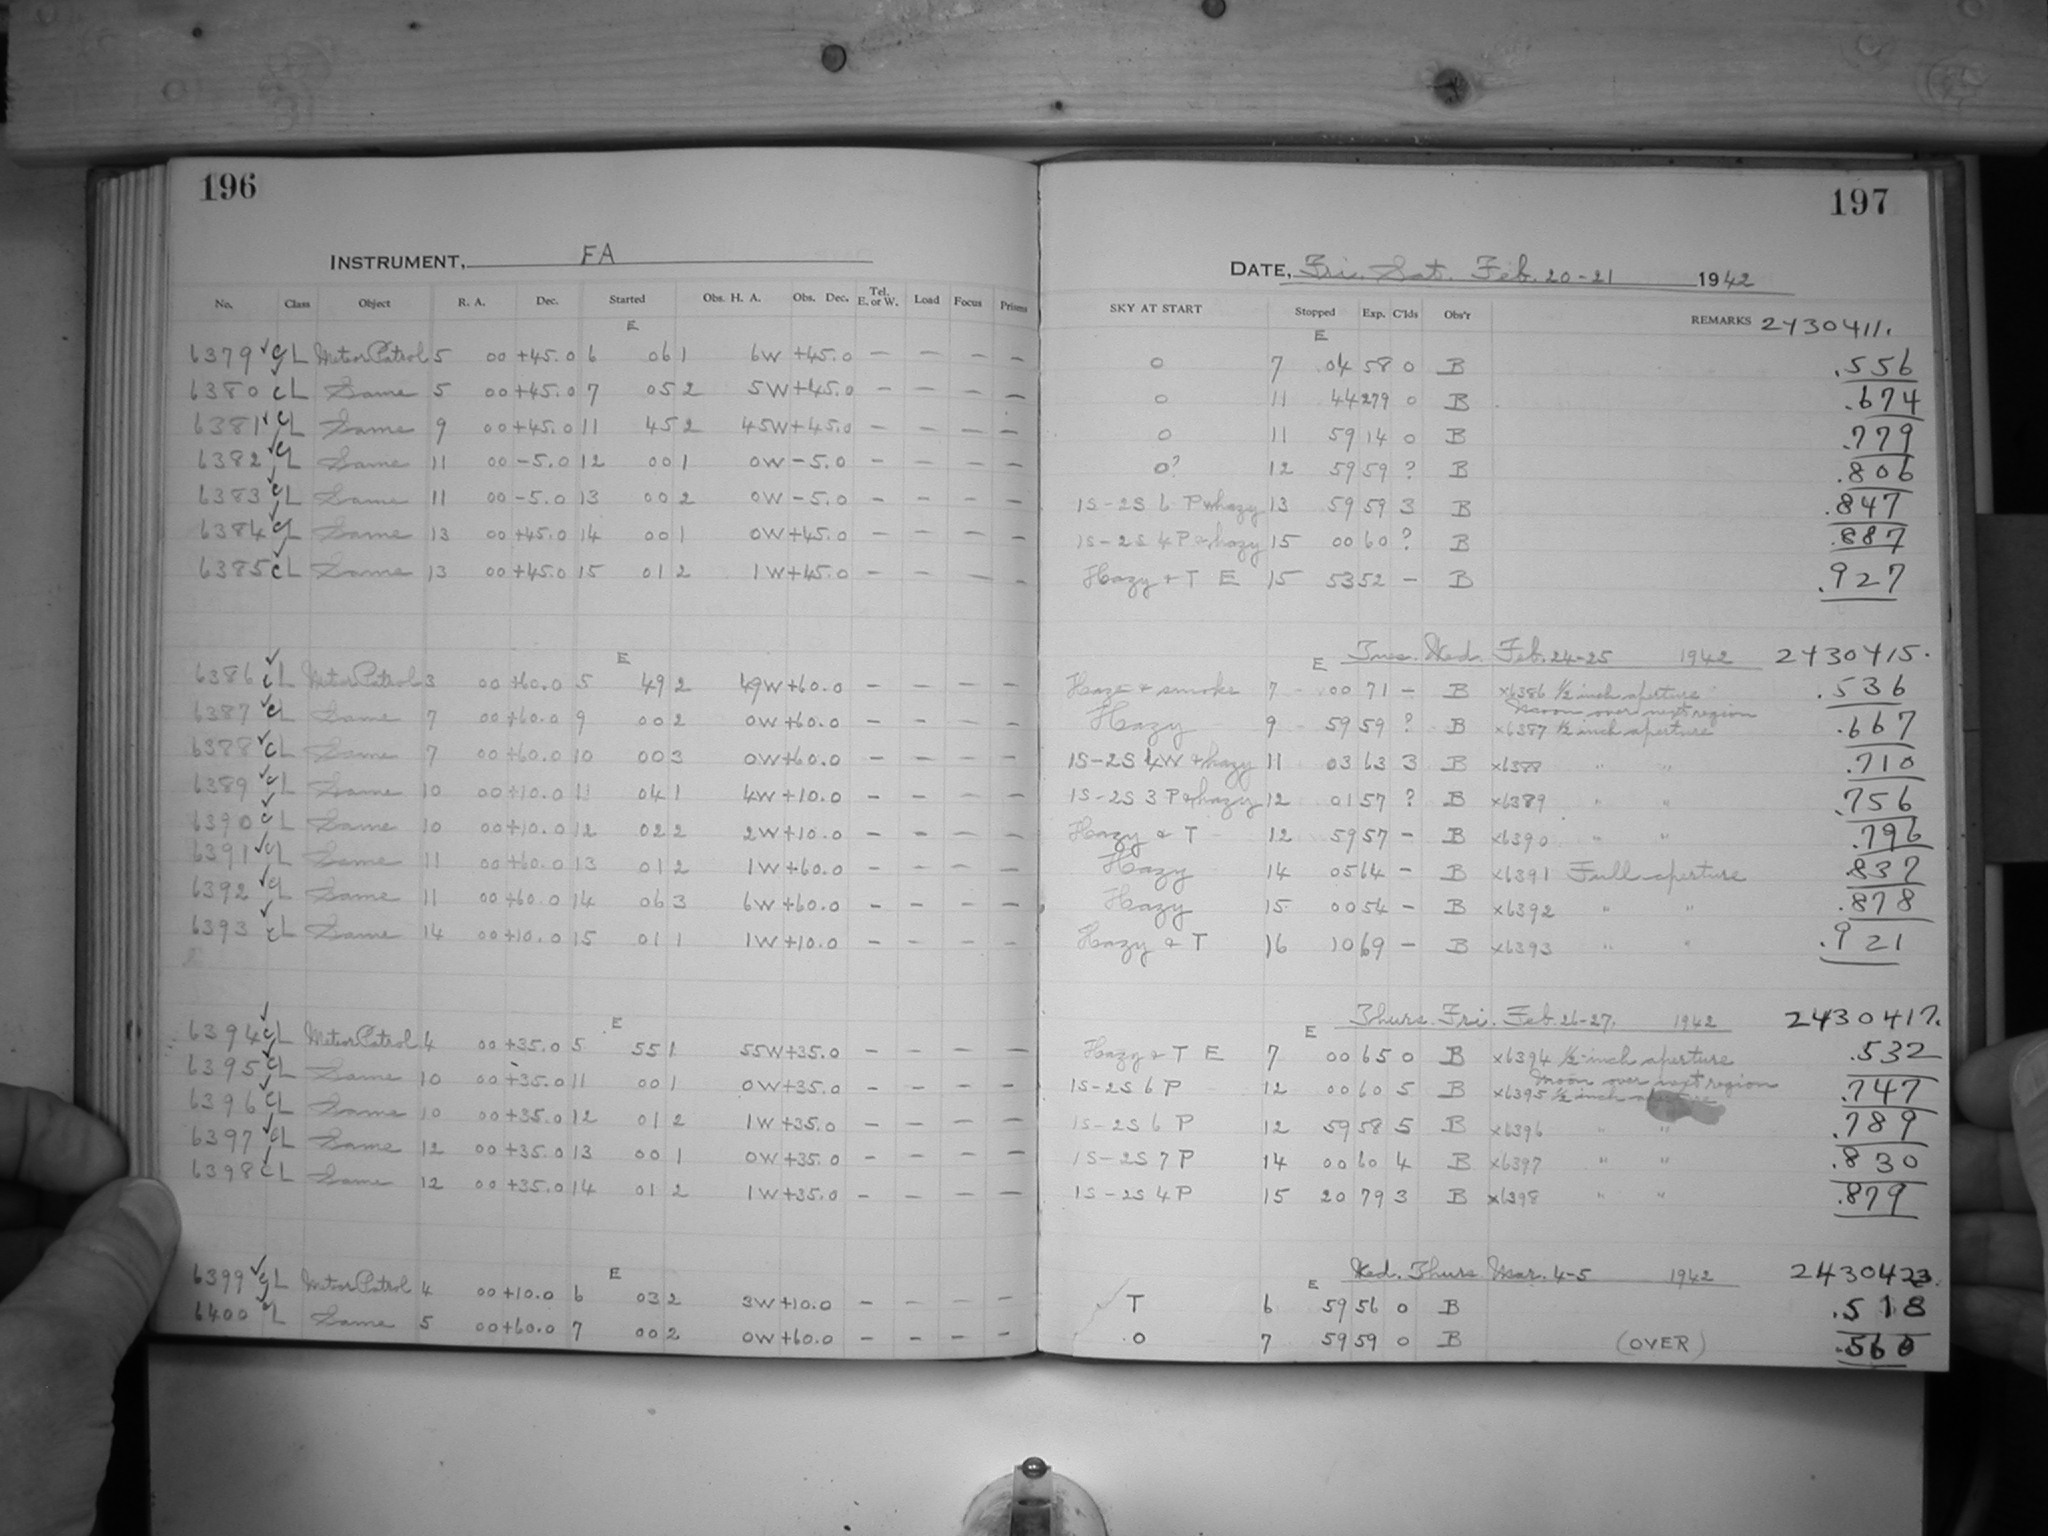 196
INSTRUMENT, FA
No. Class Object R. A. Dec. Started Obs. H. A. Obs. Dec. Tel. E. or W. Load Focus Prisms
E
6379 ✓ c L Meteor Patrol 5 00 +45.0 6 06 1 6W +45.0 — — — —
6380 ✓ c L Same 5 00 +45.0 7 05 2 5W +45.0 — — — —
6381 ✓ c L Same 9 00 +45.0 11 45 2 45W +45.0 — — — —
6382 ✓ c L Same 11 00 -5.0 12 00 1 0W -5.0 — — — —
6383 ✓ c L Same 11 00 -5.0 13 00 2 0W -5.0 — — — —
6384 ✓ c L Same 13 00 +45.0 14 00 1 0W +45.0 — — — —
6385 ✓ c L Same 13 00 +45.0 15 01 2 1W +45.0 — — — —
E
6386 ✓ c L Meteor Patrol 3 00 +60.0 5 49 2 49W +60.0 — — — —
6387 ✓ c L Same 7 00 +60.0 9 00 2 0W +60.0 — — — —
6388 ✓ c L Same 7 00 +60.0 10 00 3 0W +60.0 — — — —
6389 ✓ c L Same 10 00 +10.0 11 04 1 4W +10.0 — — — —
6390 ✓ c L Same 10 00 +10.0 12 02 2 2W +10.0 — — — —
6391 ✓ c L Same 11 00 +60.0 13 01 2 1W +60.0 — — — —
6392 ✓ c L Same 11 00 +60.0 14 06 3 6W +60.0 — — — —
6393 ✓ c L Same 14 00 +10.0 15 01 1 1W +10.0 — — — —
E
6394 ✓ c L Meteor Patrol 4 00 +35.0 5 55 1 55W +35.0 — — — —
6395 ✓ c L Same 10 00 +35.0 11 00 1 0W +35.0 — — — —
6396 ✓ c L Same 10 00 +35.0 12 01 2 1W +35.0 — — — —
6397 ✓ c L Same 12 00 +35.0 13 00 1 0W +35.0 — — — —
6398 ✓ c L Same 12 00 +35.0 14 01 2 1W +35.0 — — — —
E
6399 ✓ c L Meteor Patrol 4 00 +10.0 6 03 2 3W +10.0 — — — —
6400 ✓ c L Same 5 00 +60.0 7 00 2 0W +60.0 — — — —
197
DATE, Fri. Sat. Feb. 20-21 1942
SKY AT START Stopped Exp. C'lds Obs'r REMARKS 2430411.
E
0 7 04 58 0 B .556
0 11 44 279 0 B .674
0 11 59 14 0 B .779
0? 12 59 59 ? B .806
1S-2S 6 P & hazy 13 59 59 3 B .847
1S-2S 4 P & hazy 15 00 60 ? B .887
Hazy + T E 15 53 52 — B .927
E Tues. Wed. Feb. 24-25 1942 2430415.
Haze + smoke 7 00 71 — B ×6386 ½ inch aperture .536
Moon over next region
Hazy 9 59 59 ? B ×6387 ½ inch aperture .667
1S-2S 4W & hazy 11 03 63 3 B ×6388 " " .710
1S-2S 3 P & hazy 12 01 57 ? B ×6389 " " .756
Hazy & T 12 59 57 — B ×6390 " " .796
Hazy 14 05 64 — B ×6391 Full aperture .837
Hazy 15 00 54 — B ×6392 " " .878
Hazy & T 16 10 69 — B ×6393 " " .921
E Thurs. Fri. Feb. 26-27. 1942 2430417.
Hazy & T E 7 00 65 0 B ×6394 ½-inch aperture .532
Moon over next region
1S-2S 6 P 12 00 60 5 B ×6395 ½ inch aperture .747
1S-2S 6 P 12 59 58 5 B ×6396 " " .789
1S-2S 7 P 14 00 60 4 B ×6397 " " .830
1S-2S 4 P 15 20 79 3 B ×6398 " " .879
E Wed. Thurs Mar. 4-5 1942 2430423.
T 6 59 56 0 B .518
0 7 59 59 0 B (OVER) .560